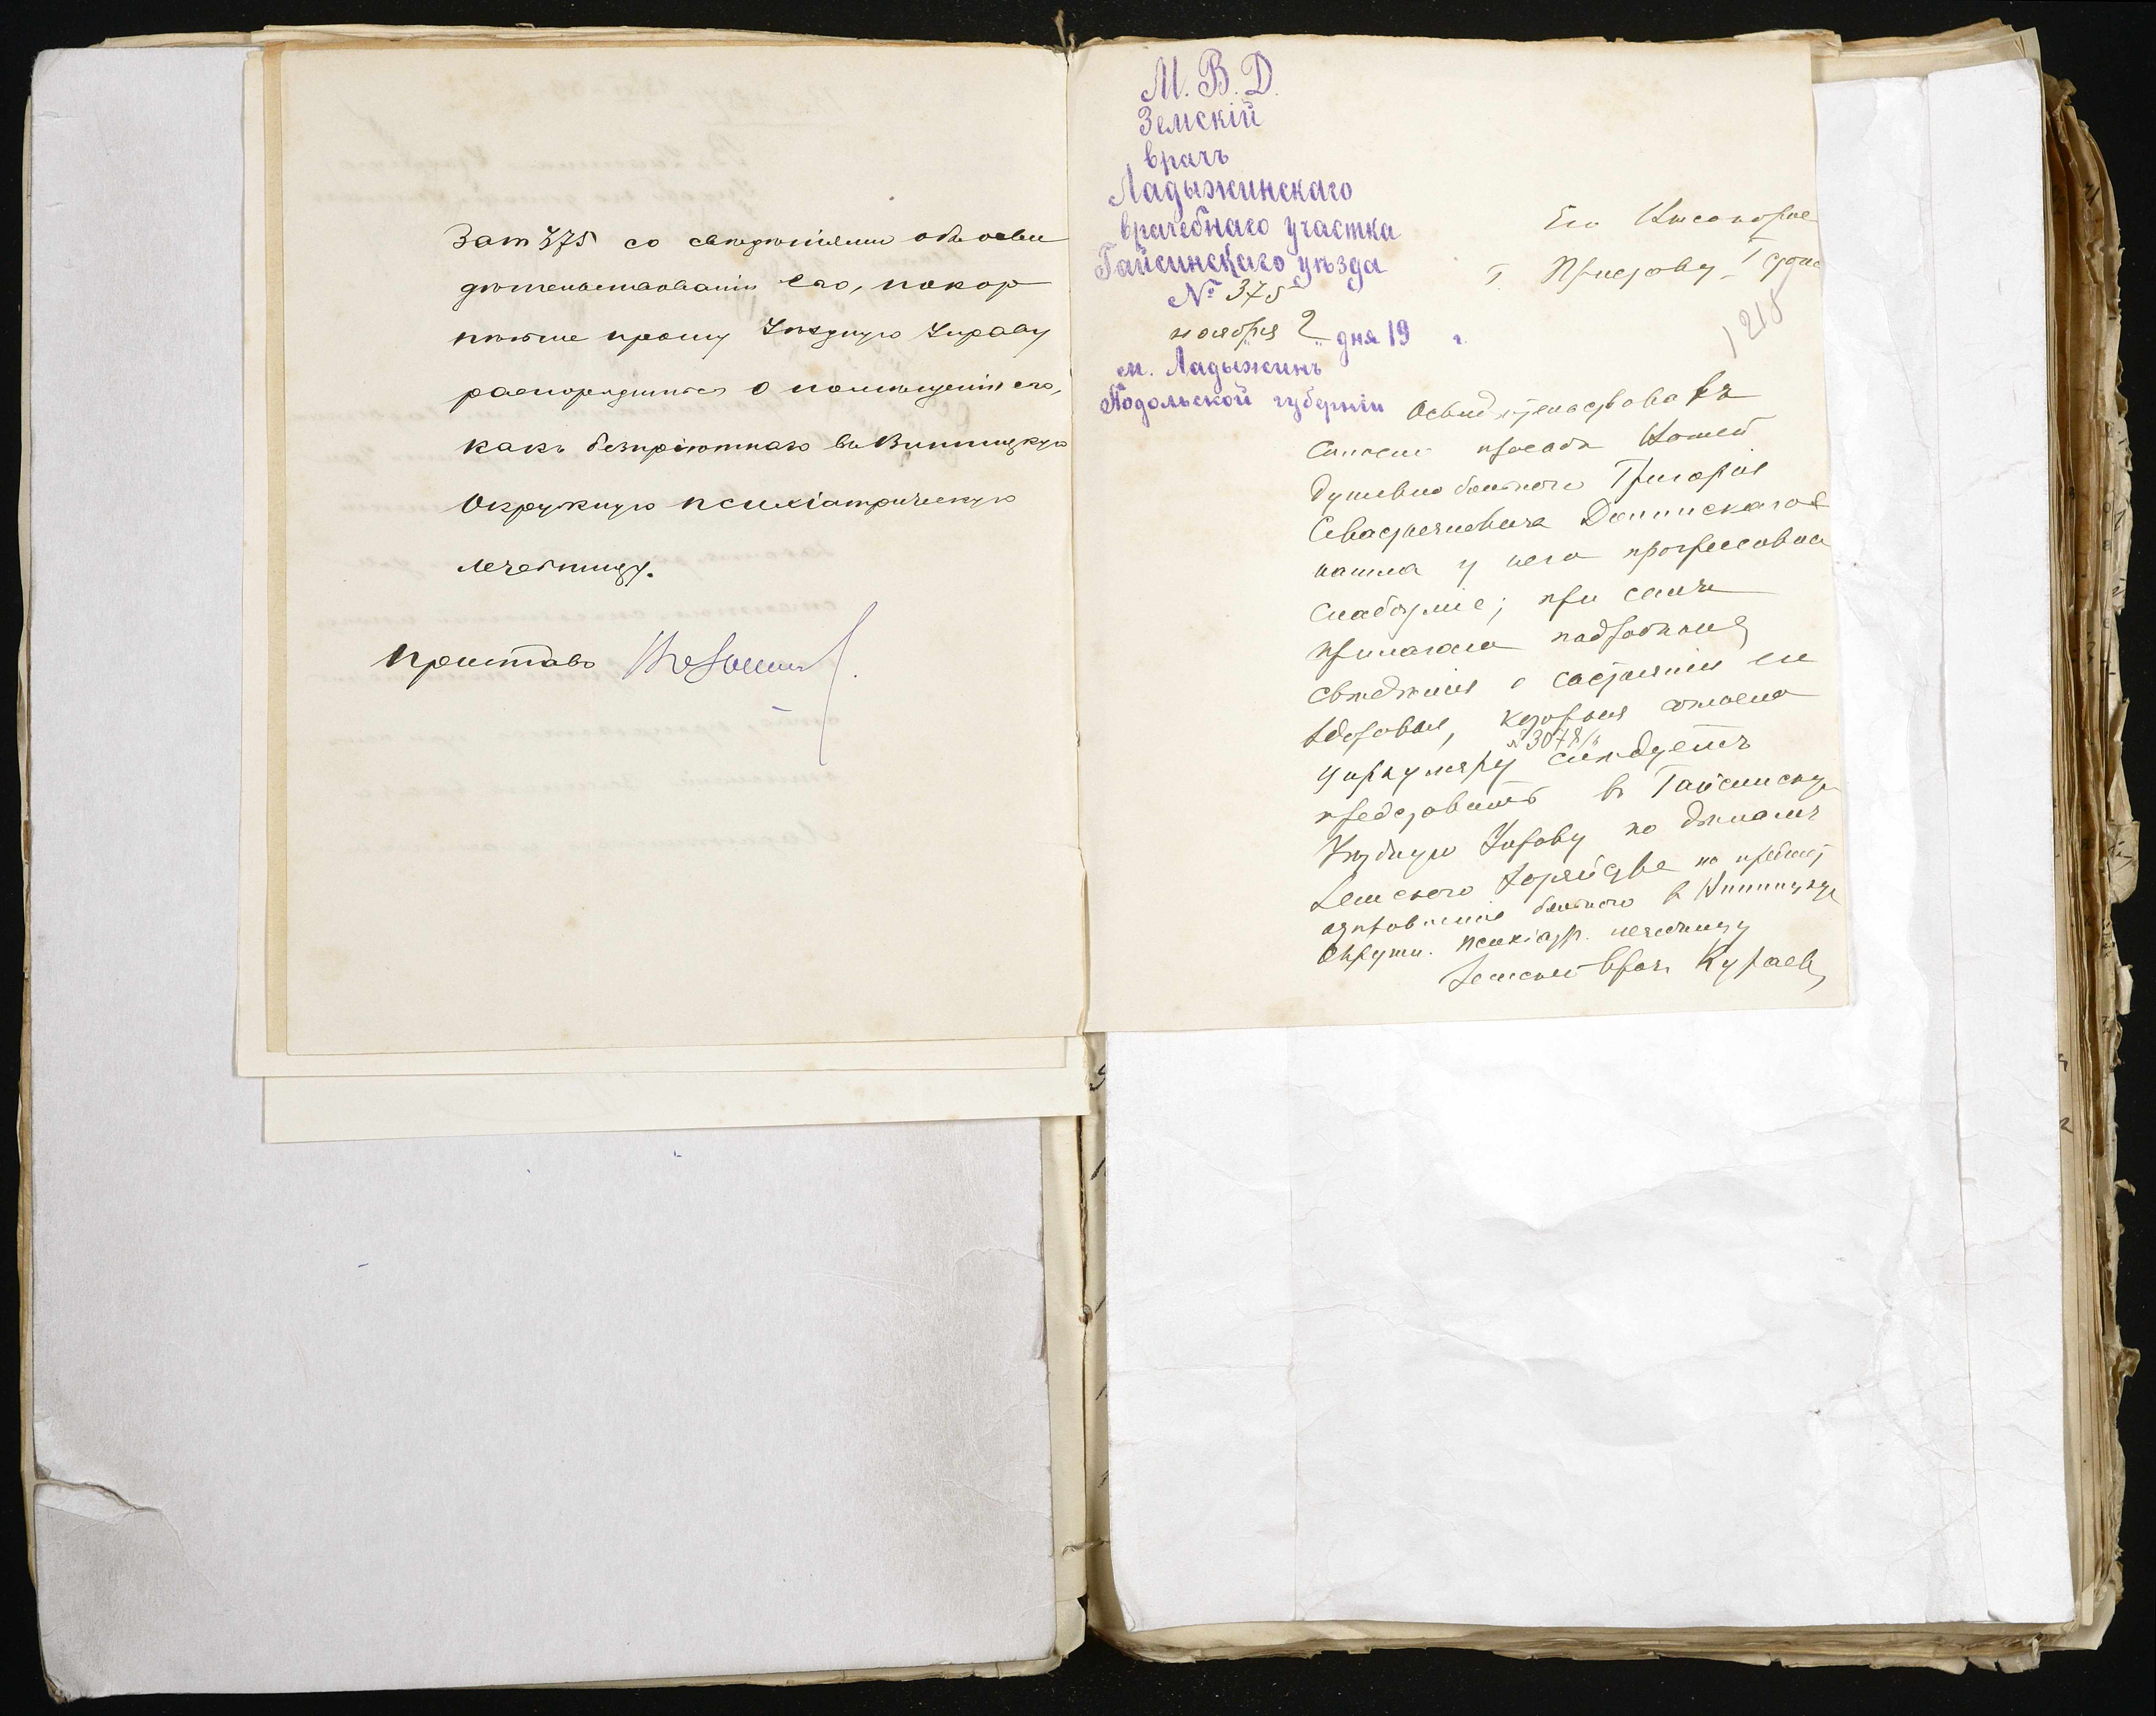 За № 375 со сведениями объ осви
дѣтельствованіи его, покор
нѣйше прошу Уѣздную Управу
распорядиться о помѣщеніи его,
какъ безпріютнаго въ Винницкую
Окружную психіатрическую
лечебницу.
Приставъ
М. В. Д.
Земскій
врачъ
Ладыжинскаго
врачебнаго участка
Гайсинскаго уѣзда
№ 375
ноября 2 дня 19 г.
м. Ладыжинъ
Подольской губерніи
Его Высокоро
Г. Приставу
1215
Освидѣтельствовавъ
согласно просьбѣ Вашей
душевно больного Григорія
Севастьяновича
нашла у него прогрессивное
слабоуміе; при семъ
прилагаю подробныя
свѣдѣнія о состояніи его
здоровья, которыя согласно
№ 3078
циркуляру слѣдуетъ
представить въ Гайсинскую
Уѣздную Управу по дѣламъ
Земскаго Хозяйства на предмет
отправленія больного в Винницкую
Окружн. психіатр. лечебницу
Земскій врачъ